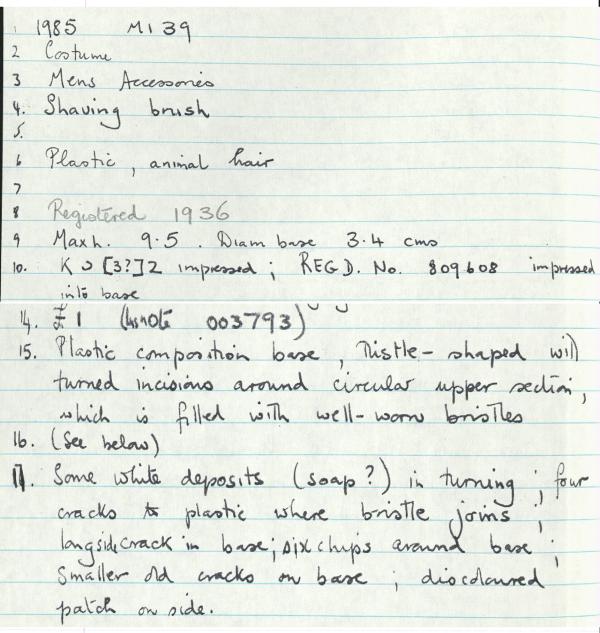 1 1985 MI 39
2 Costume
3 Mens Accessories
4. Shaving brush
5.
6 Plastic, animal hair
7
8 Registered 1936
9 Max h. 9.5. Diam base 3.4 cms
10. K [3?]2 impressed; REGD. No. 809608 impressed
into base
14. £1 003793)
15. Plastic composition base, Thistle-shaped with
turned incisions around circular upper section,
which is filled with well-worn bristles
16. (See below)
17. Some white deposits (soap?) in turning; four
cracks to plastic where bristle joins;
longside crack in base; six chips around base;
Smaller old cracks on base; discoloured
patch on side.